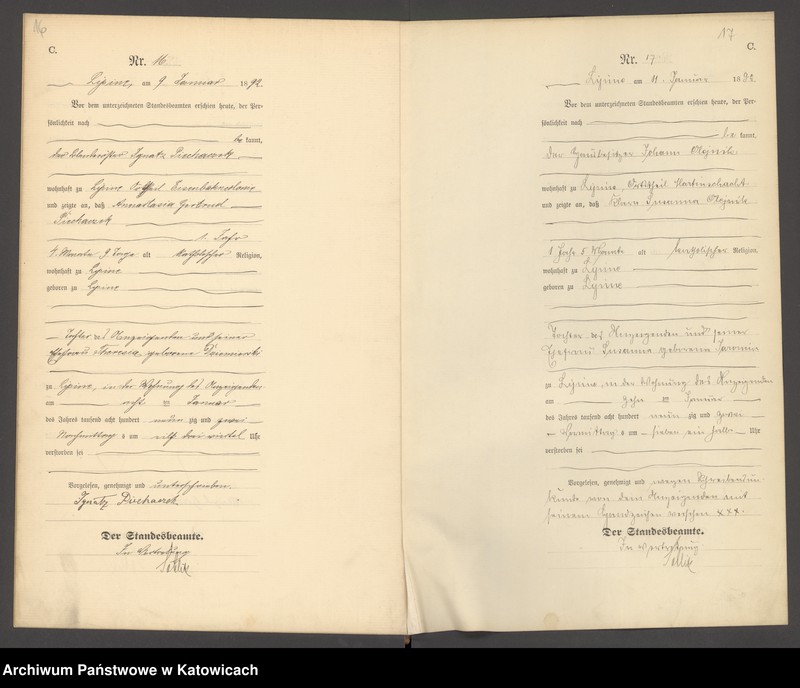 16
C.
Nr. 16
Lipine, am 9 Januar 1892
Vor dem unterzeichneten Standesbeamten erschien heute, der Per-
sönlichkeit nach
be kannt,
Ignatz Piechaczek
wohnhaft zu Lipine
und zeigte an, daß
Piechaczek
1 Jahr
Monate 9 Tage alt katholischer Religion,
wohnhaft zu Lipine
geboren zu Lipine
Tochter des Anzeigenden und seiner
Ehefrau geborene
zu Lipine, in der Wohnung des Anzeigenden
am acht ten Januar
des Jahres tausend acht hundert neun zig und zwei
Nachmittag s um elf drei viertel Uhr
verstorben sei
Vorgelesen, genehmigt und unterschrieben.
Ignatz Piechaczek
Der Standesbeamte.
In Vertretung
17
C.
Nr. 17
Lipine am 11 Januar 1892
Vor dem unterzeichneten Standesbeamten erschien heute, der Per-
sönlichkeit nach
be kannt,
der Johann Olejnik
wohnhaft zu Lipine Ortstheil Martinschacht
und zeigte an, daß Klara Susanna Olejnik
1 Jahr 5 Monate alt katholischer Religion,
wohnhaft zu Lipine
geboren zu Lipine
Tochter des Anzeigenden und seiner
Ehefrau Susanna geborenen
zu Lipine, in der Wohnung des Anzeigenden
am zehn ten Januar
des Jahres tausend acht hundert neun zig und zwei
Vormittag s um sieben ein halb Uhr
verstorben sei
Vorgelesen, genehmigt und wegen Schreibensun-
kunde von dem Anzeigenden mit
seinem Handzeichen versehen xxx.
Der Standesbeamte.
In Vertretung
Archiwum Państwowe w Katowicach